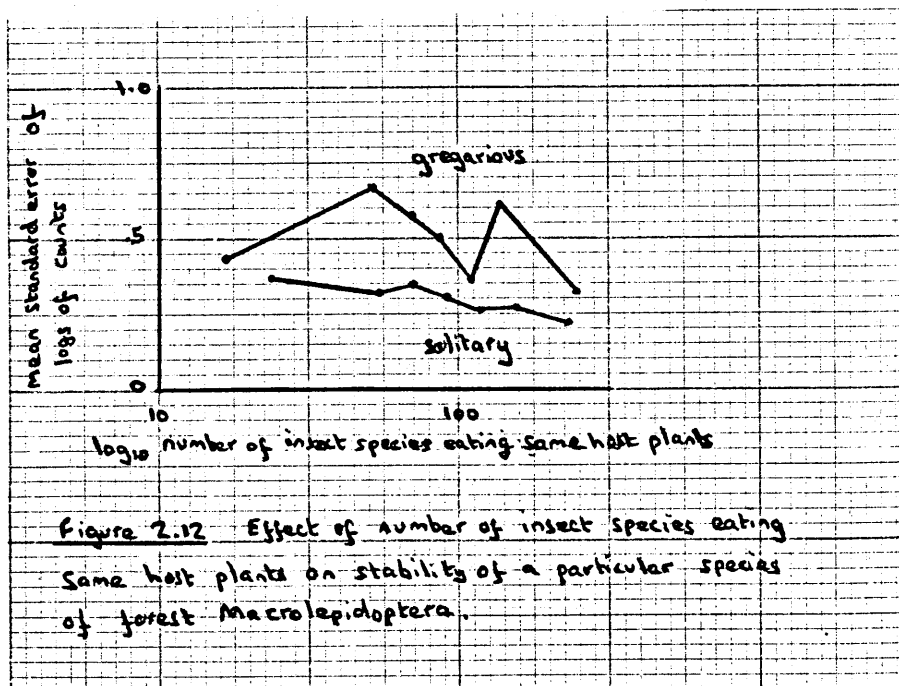 mean standard error of
logs of counts
1.0
.5
0
gregarious
solitary
10
100
log₁₀ number of insect species eating same host plants
Figure 2.12 Effect of number of insect species eating
same host plants on stability of a particular species
of forest Macrolepidoptera.